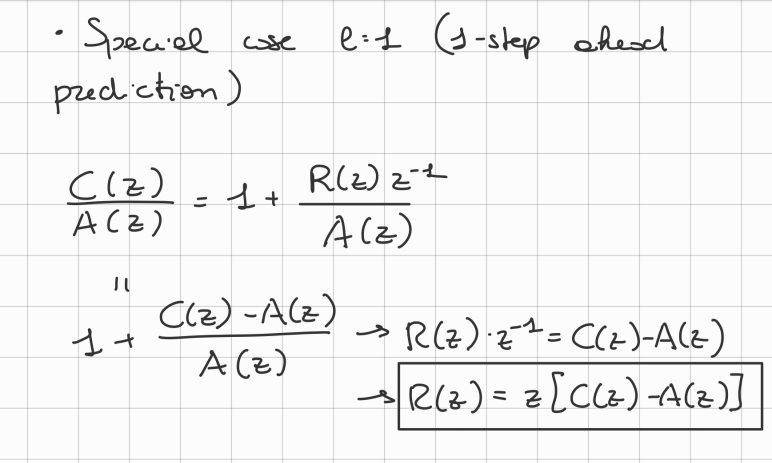 • Special case l=1 (1-step ahead
prediction)
C(z)/A(z) = 1 + R(z) z⁻¹/A(z)
=
1 + C(z) - A(z)/A(z) → R(z)·z⁻¹ = C(z)-A(z)
→ R(z) = z[C(z)-A(z)]